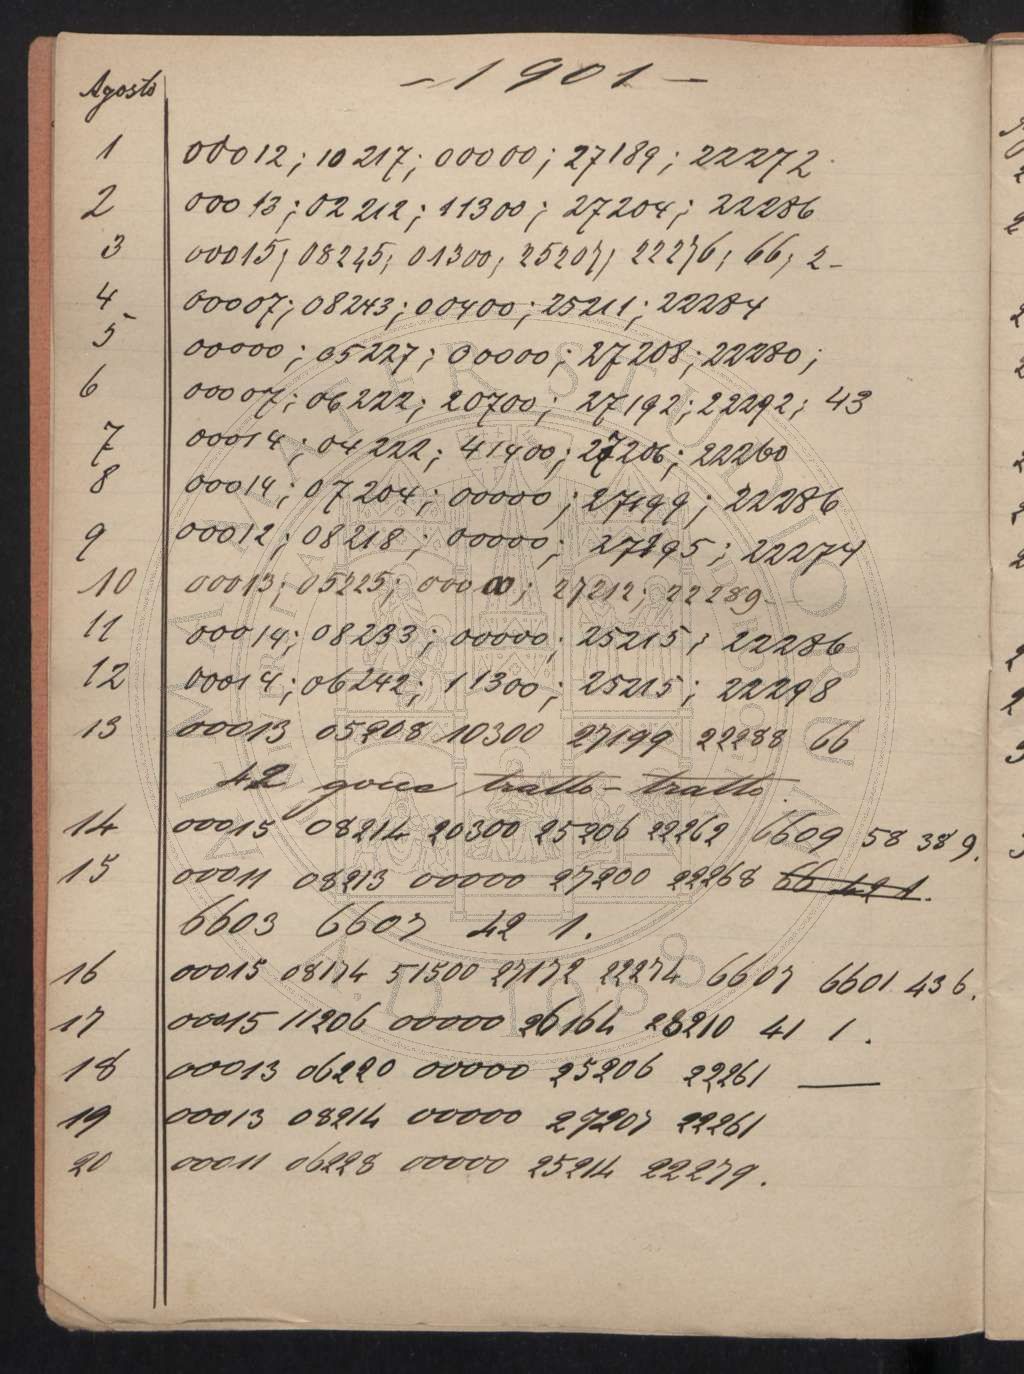 - 1901 -
Agosto
1 00012; 10217; 00000; 27189; 22272
2 00013; 02212; 11300; 27204; 22286
3 00015; 08245; 01300; 25207; 22276; 66; 2-
4 00007; 08243; 00400; 25211; 22284
5 00000; 05227; 00000; 27208; 22280;
6 00007; 06222; 20700; 27192; 22292; 43
7 00014; 04222; 41400; 27206; 22260
8 00014; 07204; 00000; 27199; 22286
9 00012; 08218; 00000; 27195; 22274
10 00013; 05225; 00000; 27212; 22289-
11 00014; 08233; 00000; 25215; 22286
12 00014; 06242; 11300; 25215; 22298
13 00013 05208 10300 27199 22288 66
42 gocce tratto-tratto.
14 00015 08214 20300 25206 22262 6609 58 38 9.
15 00011 08213 00000 27200 22268 66 42 1.
6603 6607 42 1.
16 00015 08174 51500 27172 22274 6607 6601 43 6.
17 00015 11206 00000 26164 28210 41 1.
18 00013 06220 00000 25206 22261 —
19 00013 08214 00000 27207 22261
20 00011 06228 00000 25214 22279.